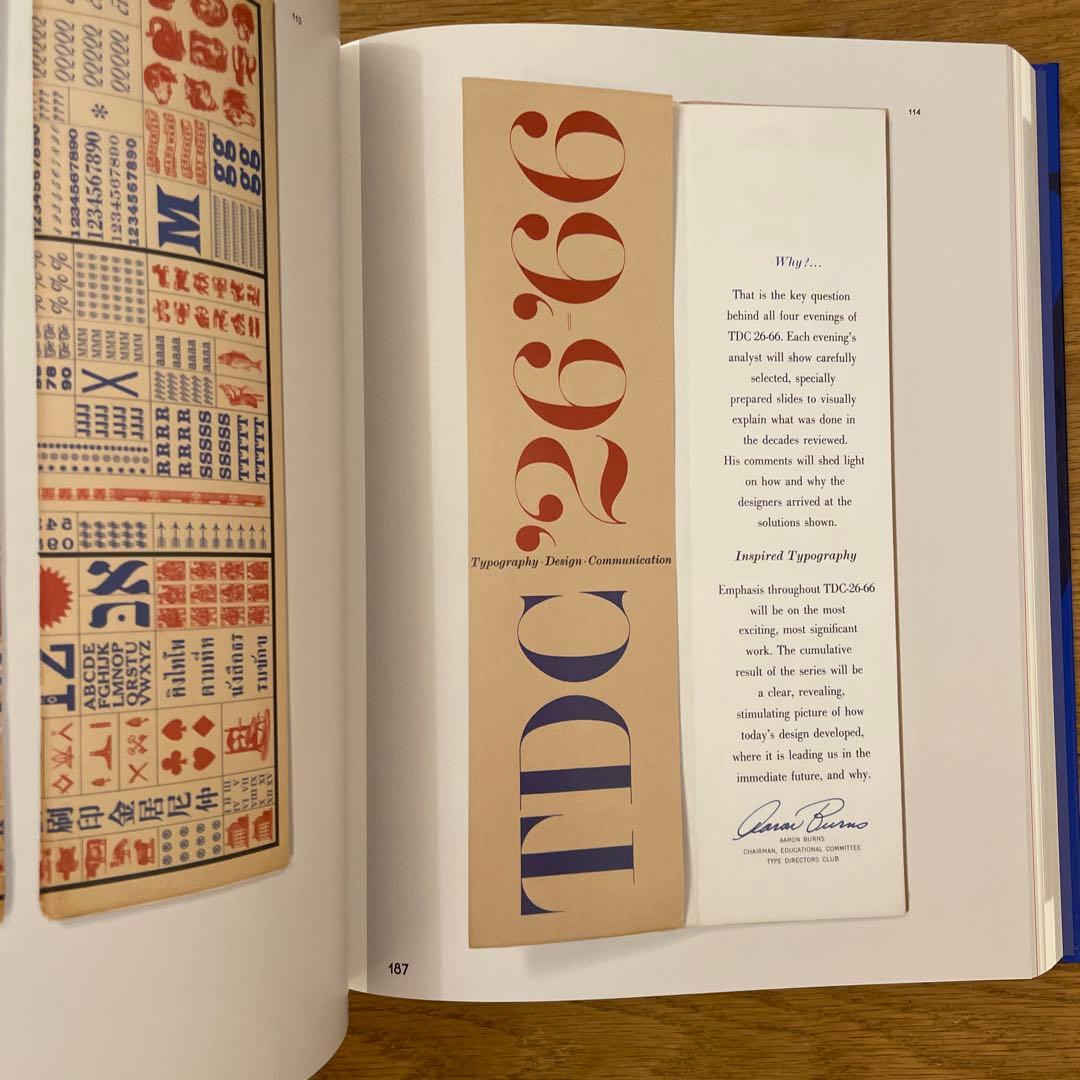 113
1234567890
1234567890
1234567890
1234567890
*
M
gg
gg
GROCERIES
HARDWARE
CROCKERY
DRY GOODS
% % %
% % %
78
90
MMM
MMM
MMM
MMM
MMM
X
JJJJ
JJJJ
JJJJ
JJJJ
aaaa
aaaa
aaaa
aaaa
RRRR
RRRR
SSSSS
SSSSS
TTTTT
TTTTT
17
ABCDE
FGHIJK
LMNOP
QRSTU
VWXYZ
刷印金居尼仲
I II III
IV V
VI VII
VIII IX
X XI
XII XV
TDC ’26-’66
Typography·Design·Communication
187
114
Why?...
That is the key question
behind all four evenings of
TDC 26-66. Each evening's
analyst will show carefully
selected, specially
prepared slides to visually
explain what was done in
the decades reviewed.
His comments will shed light
on how and why the
designers arrived at the
solutions shown.
Inspired Typography
Emphasis throughout TDC-26-66
will be on the most
exciting, most significant
work. The cumulative
result of the series will be
a clear, revealing,
stimulating picture of how
today's design developed,
where it is leading us in the
immediate future, and why.
Aaron Burns
AARON BURNS
CHAIRMAN, EDUCATIONAL COMMITTEE
TYPE DIRECTORS CLUB